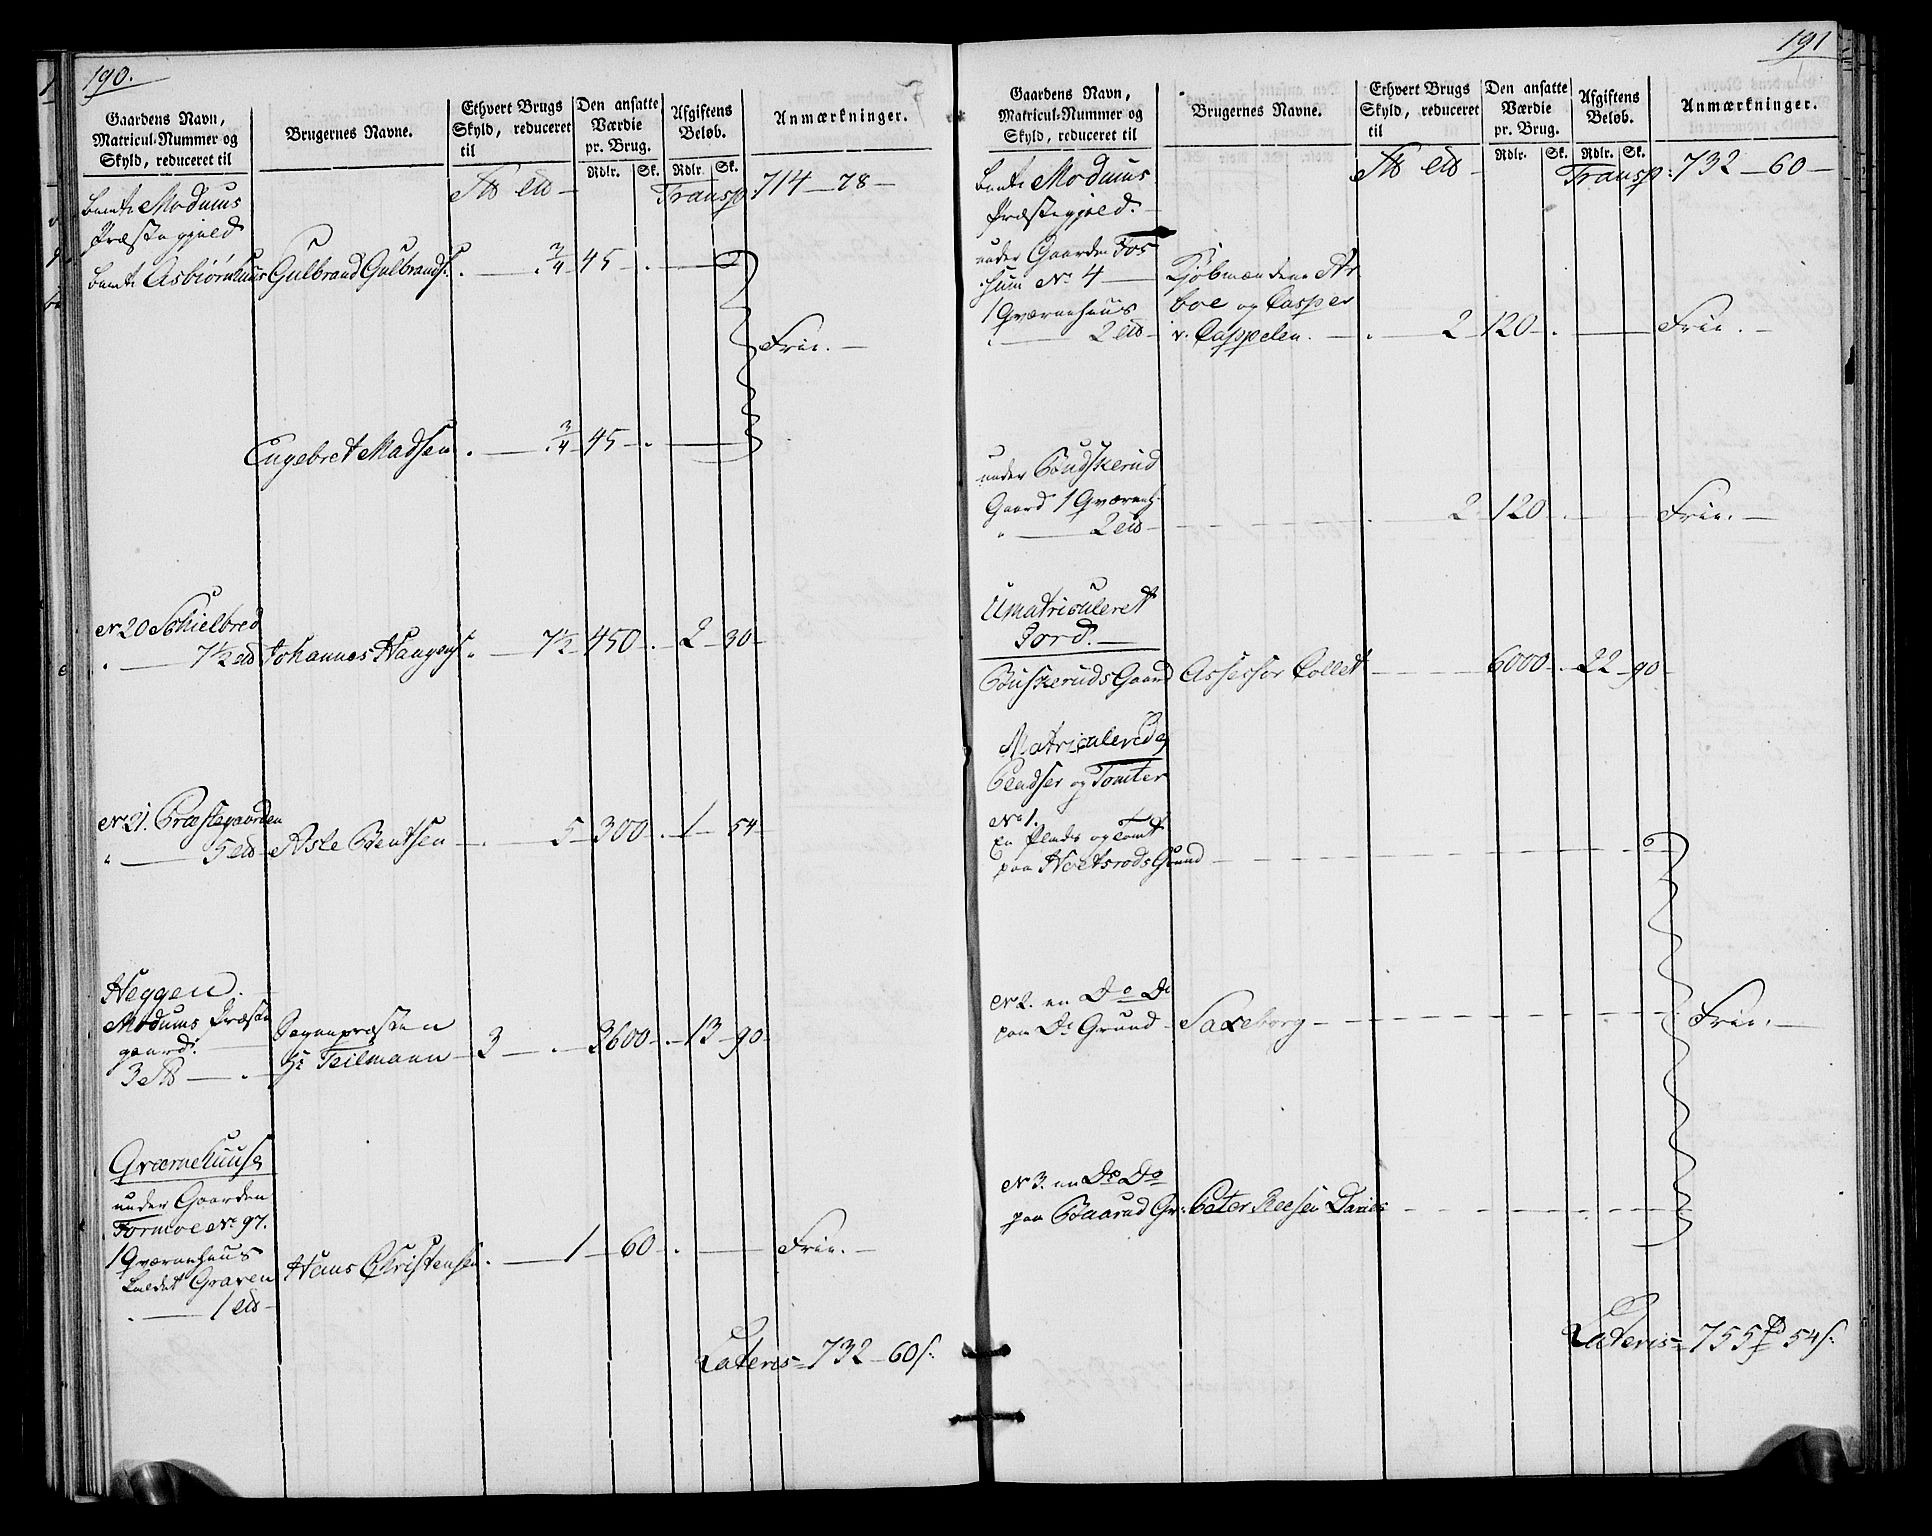 190.
Gaardens Navn,
Matricul-Nummer og
Skyld, reduceret til
Brugernes Navne.
Ethvert Brugs
Skyld, reduceret
til
Den ansatte
Værdie
pr. Brug.
Rdlr. Sk.
Afgiftens
Beløb.
Rdlr. Sk.
Anmærkninger.
Transp 714 — 78 —
Modums
Præstegjeld
Asbiørnhuus Gulbrand Gulbrands. . — . 3/4 45 — . —
Frie. —
Engebret Madsen . — . 3/4 45 — . —
No 20 Schielbred
" — 7 1/2 Johannes Haugens. " 7 1/2 450 . 2 — 30 —
No 21. Præstegaarden
" — 5 Asle Bentsen — . 5 — 300 — . 1 — 54 —
Heggen.
Modums Præste
gaard.
3 — .
Sognepræsten
Hr Teilmann — 3 — . — 3600 — . 13 — 90 —
Qværnehuuse
under Gaarden
Formoe No 97.
1 Qværnehuus
kaldet Graven
. — 1
Hans Christensen . — 1 — 60 — . — Frie. —
Lateris = 732 — 60 s.
191
Gaardens Navn,
Matricul-Nummer og
Skyld, reduceret til
Brugernes Navne.
Ethvert Brugs
Skyld, reduceret
til
Den ansatte
Værdie
pr. Brug.
Rdlr. Sk.
Afgiftens
Beløb.
Rdlr. Sk.
Anmærkninger.
Transp. 732 — 60 —
Modums
Præstegjeld. —
under Gaarden Fos
sum No 4 —
1 Qværnehuus
" — 2
Kjøbmændene Ar
boe og Casper
v. Cappelen. — . — 2 — 120 — . — Frie. —
under Budskerud
Gaard 1 Qværneh.
" — 2 — . 2 — 120 — . — Frie. —
Umatriculeret
Jord. —
Buskeruds Gaard Assessor Collet — 6000 — . 22 — 90 —
Matriculerede
Pladser og Tomter
No 1.
En Plads og Tomt
paa Grund —
No 2. en Do Do
paa Do Grund — Saxeborg — Frie. —
No 3. en Do Do
paa Baarud Gr. Peter —
Lateris = 755 54 s.